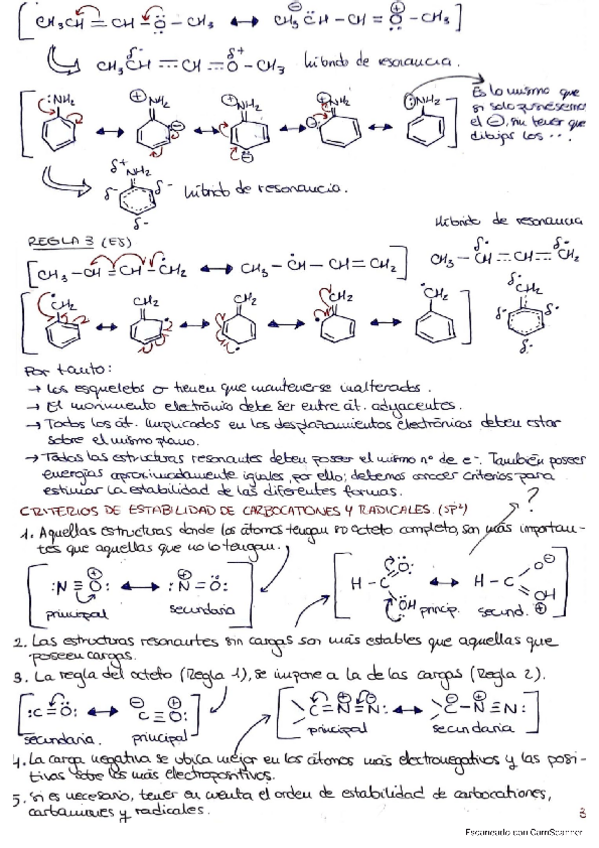 [CH₃CH=CH-Ö-CH₃ ↔ CH₃C̈H-CH=Ö-CH₃]
CH₃CH ⋯ CH ⋯ Ö-CH₃ híbrido de resonancia.
Es lo mismo que
:NH₂ NH₂ NH₂ NH₂ :NH₂
híbrido de resonancia.
Híbrido de resonancia
REGLA 3 (EJ)
[CH₃-CH=CH-ĊH₂ ↔ CH₃-ĊH-CH=CH₂] CH₃-CH ⋯ CH ⋯ CH₂
ĊH₂ CH₂ CH₂ CH₂ ĊH₂ CH₂
Por tanto:
→ Los esqueletos σ tienen que mantenerse inalterados.
→ El movimiento electrónico debe ser entre át. adyacentes.
→ Todos los át. implicados en los desplazamientos electrónicos deben estar
sobre el mismo plano.
→ Todas las estructuras resonantes deben poseer el mismo nº de e⁻. También poseer
energías aproximadamente iguales, por ello; debemos conocer criterios para
estimar la estabilidad de las diferentes formas.
CRITERIOS DE ESTABILIDAD DE CARBOCATIONES Y RADICALES. (SP²) ?
1. Aquellas estructuras donde los átomos tengan su octeto completo, son más importan-
tes que aquellas que no lo tengan.
[:N≡O: ↔ :N=Ö:] [H-C Ö: ÖH ↔ H-C O⊖ OH]
principal secundaria princip. secund.
2. Las estructuras resonantes sin cargas son más estables que aquellas que
poseen cargas.
3. La regla del octeto (Regla 1), se impone a la de las cargas (Regla 2).
[:C=Ö: ↔ C≡O:] [C=N=N: ↔ C-N≡N:]
secundaria. principal principal secundaria
4. La carga negativa se ubica mejor en los átomos más electronegativos y las posi-
tivas sobre los más electropositivos.
5. Si es necesario, tener en cuenta el orden de estabilidad de carbocationes,
carbaniones y radicales.
3
Escaneado con CamScanner